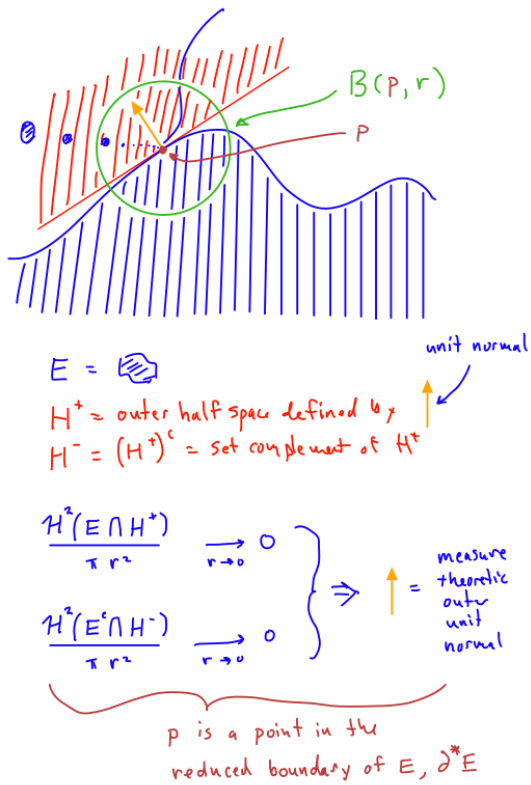 B(p, r)
p
unit normal
E =
H⁺ = outer half space defined by
H⁻ = (H⁺)ᶜ = set complement of H⁺
H²(E ∩ H⁺)
π r²
→
r→0
0
H²(Eᶜ ∩ H⁻)
π r²
→
r→0
0
⇒
=
measure
theoretic
outer
unit
normal
p is a point in the
reduced boundary of E, ∂*E